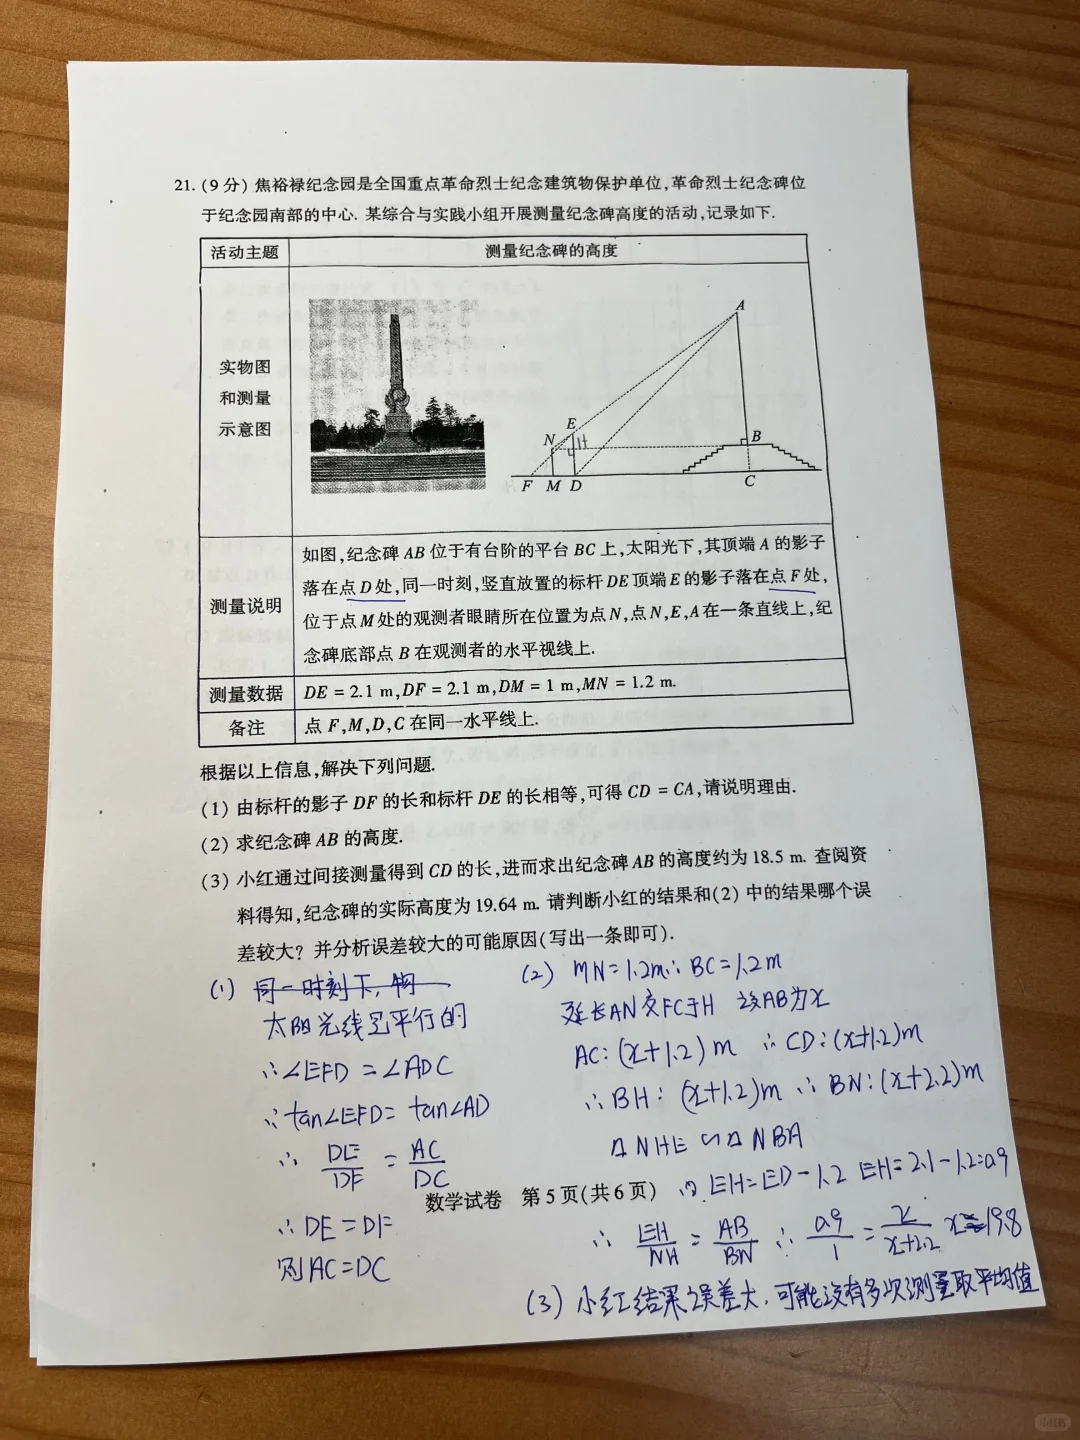 21.(9分)焦裕禄纪念园是全国重点革命烈士纪念建筑物保护单位,革命烈士纪念碑位
于纪念园南部的中心. 某综合与实践小组开展测量纪念碑高度的活动,记录如下.
活动主题 测量纪念碑的高度
实物图
和测量
示意图
A
E
N
H
B
F M D
C
测量说明
如图,纪念碑AB位于有台阶的平台BC上,太阳光下,其顶端A的影子
落在点D处,同一时刻,竖直放置的标杆DE顶端E的影子落在点F处,
位于点M处的观测者眼睛所在位置为点N,点N,E,A在一条直线上,纪
念碑底部点B在观测者的水平视线上.
测量数据 DE = 2.1 m,DF = 2.1 m,DM = 1 m,MN = 1.2 m.
备注 点F,M,D,C在同一水平线上.
根据以上信息,解决下列问题.
(1) 由标杆的影子DF的长和标杆DE的长相等,可得CD = CA,请说明理由.
(2) 求纪念碑AB的高度.
(3) 小红通过间接测量得到CD的长,进而求出纪念碑AB的高度约为18.5 m. 查阅资
料得知,纪念碑的实际高度为19.64 m. 请判断小红的结果和(2)中的结果哪个误
差较大? 并分析误差较大的可能原因(写出一条即可).
(1) 同一时刻下,物
太阳光线是平行的
∴∠EFD = ∠ADC
∴tan∠EFD = tan∠AD
∴ DE/DF = AC/DC
∴DE = DF
则AC=DC
(2) MN=1.2m∴BC=1.2m
延长AN交FC于H 设AB为x
AC:(x+1.2)m ∴CD:(x+1.2)m
∴BH:(x+1.2)m ∴BN:(x+2.2)m
△NHE∽△NBA
∴EH=ED-1.2 EH=2.1-1.2=0.9
∴ EH/NH = AB/BN ∴ 0.9/1 = x/x+2.2 x=19.8
(3) 小红结果误差大,可能没有多次测量取平均值
数学试卷 第5页(共6页)
小红书